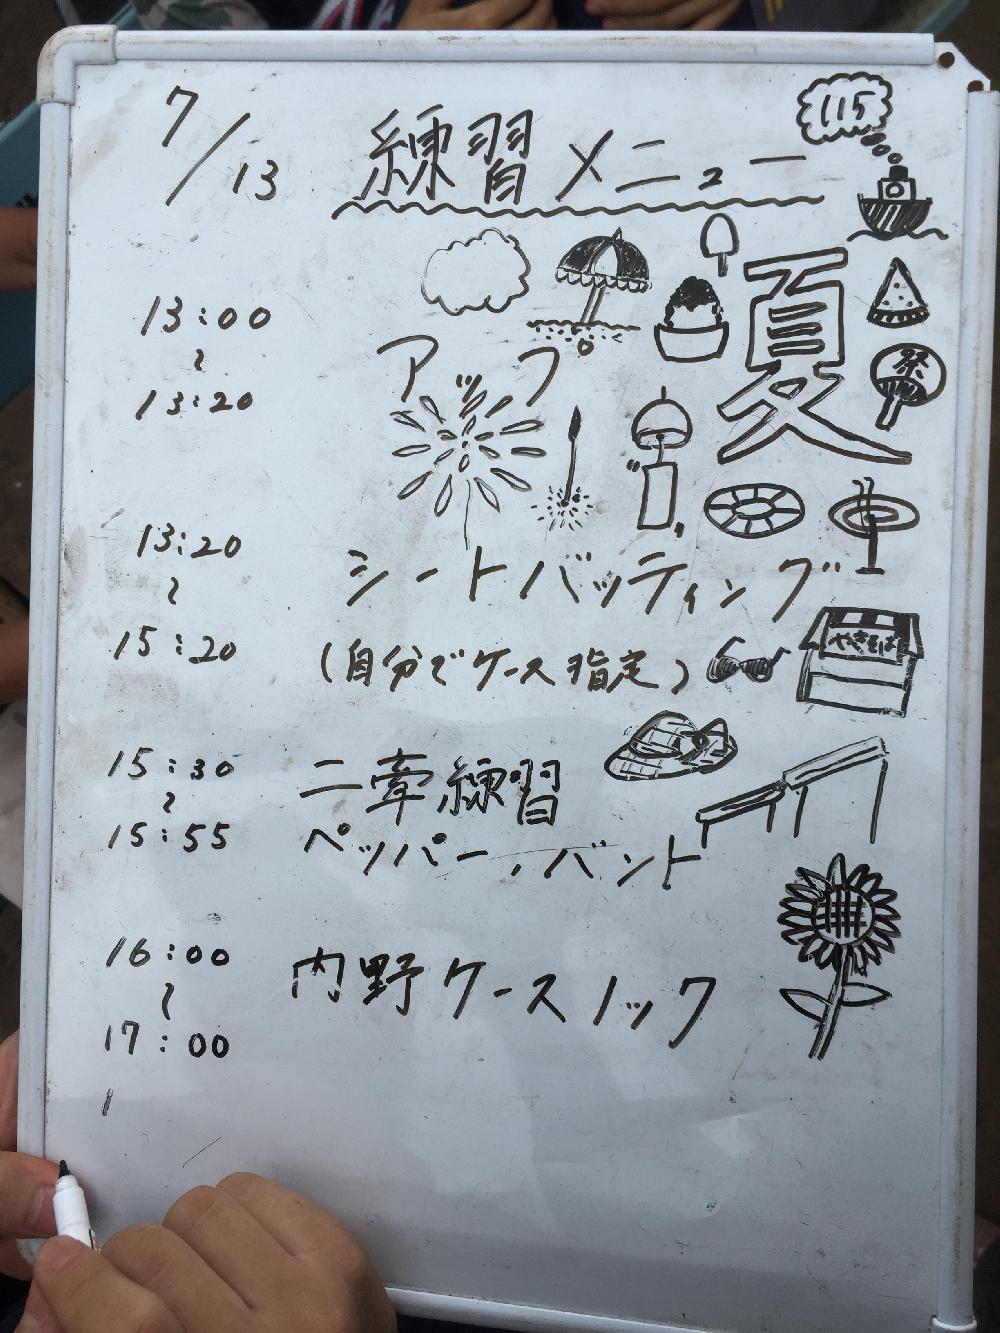 7/13 練習メニュー
115
夏
祭
13:00
〜
13:20
アップ
13:20
〜
15:20
シートバッティング
(自分でケース指定)
やきそば
15:30
〜
15:55
二牽練習
ペッパー,バント
16:00
〜
17:00
内野ケースノック